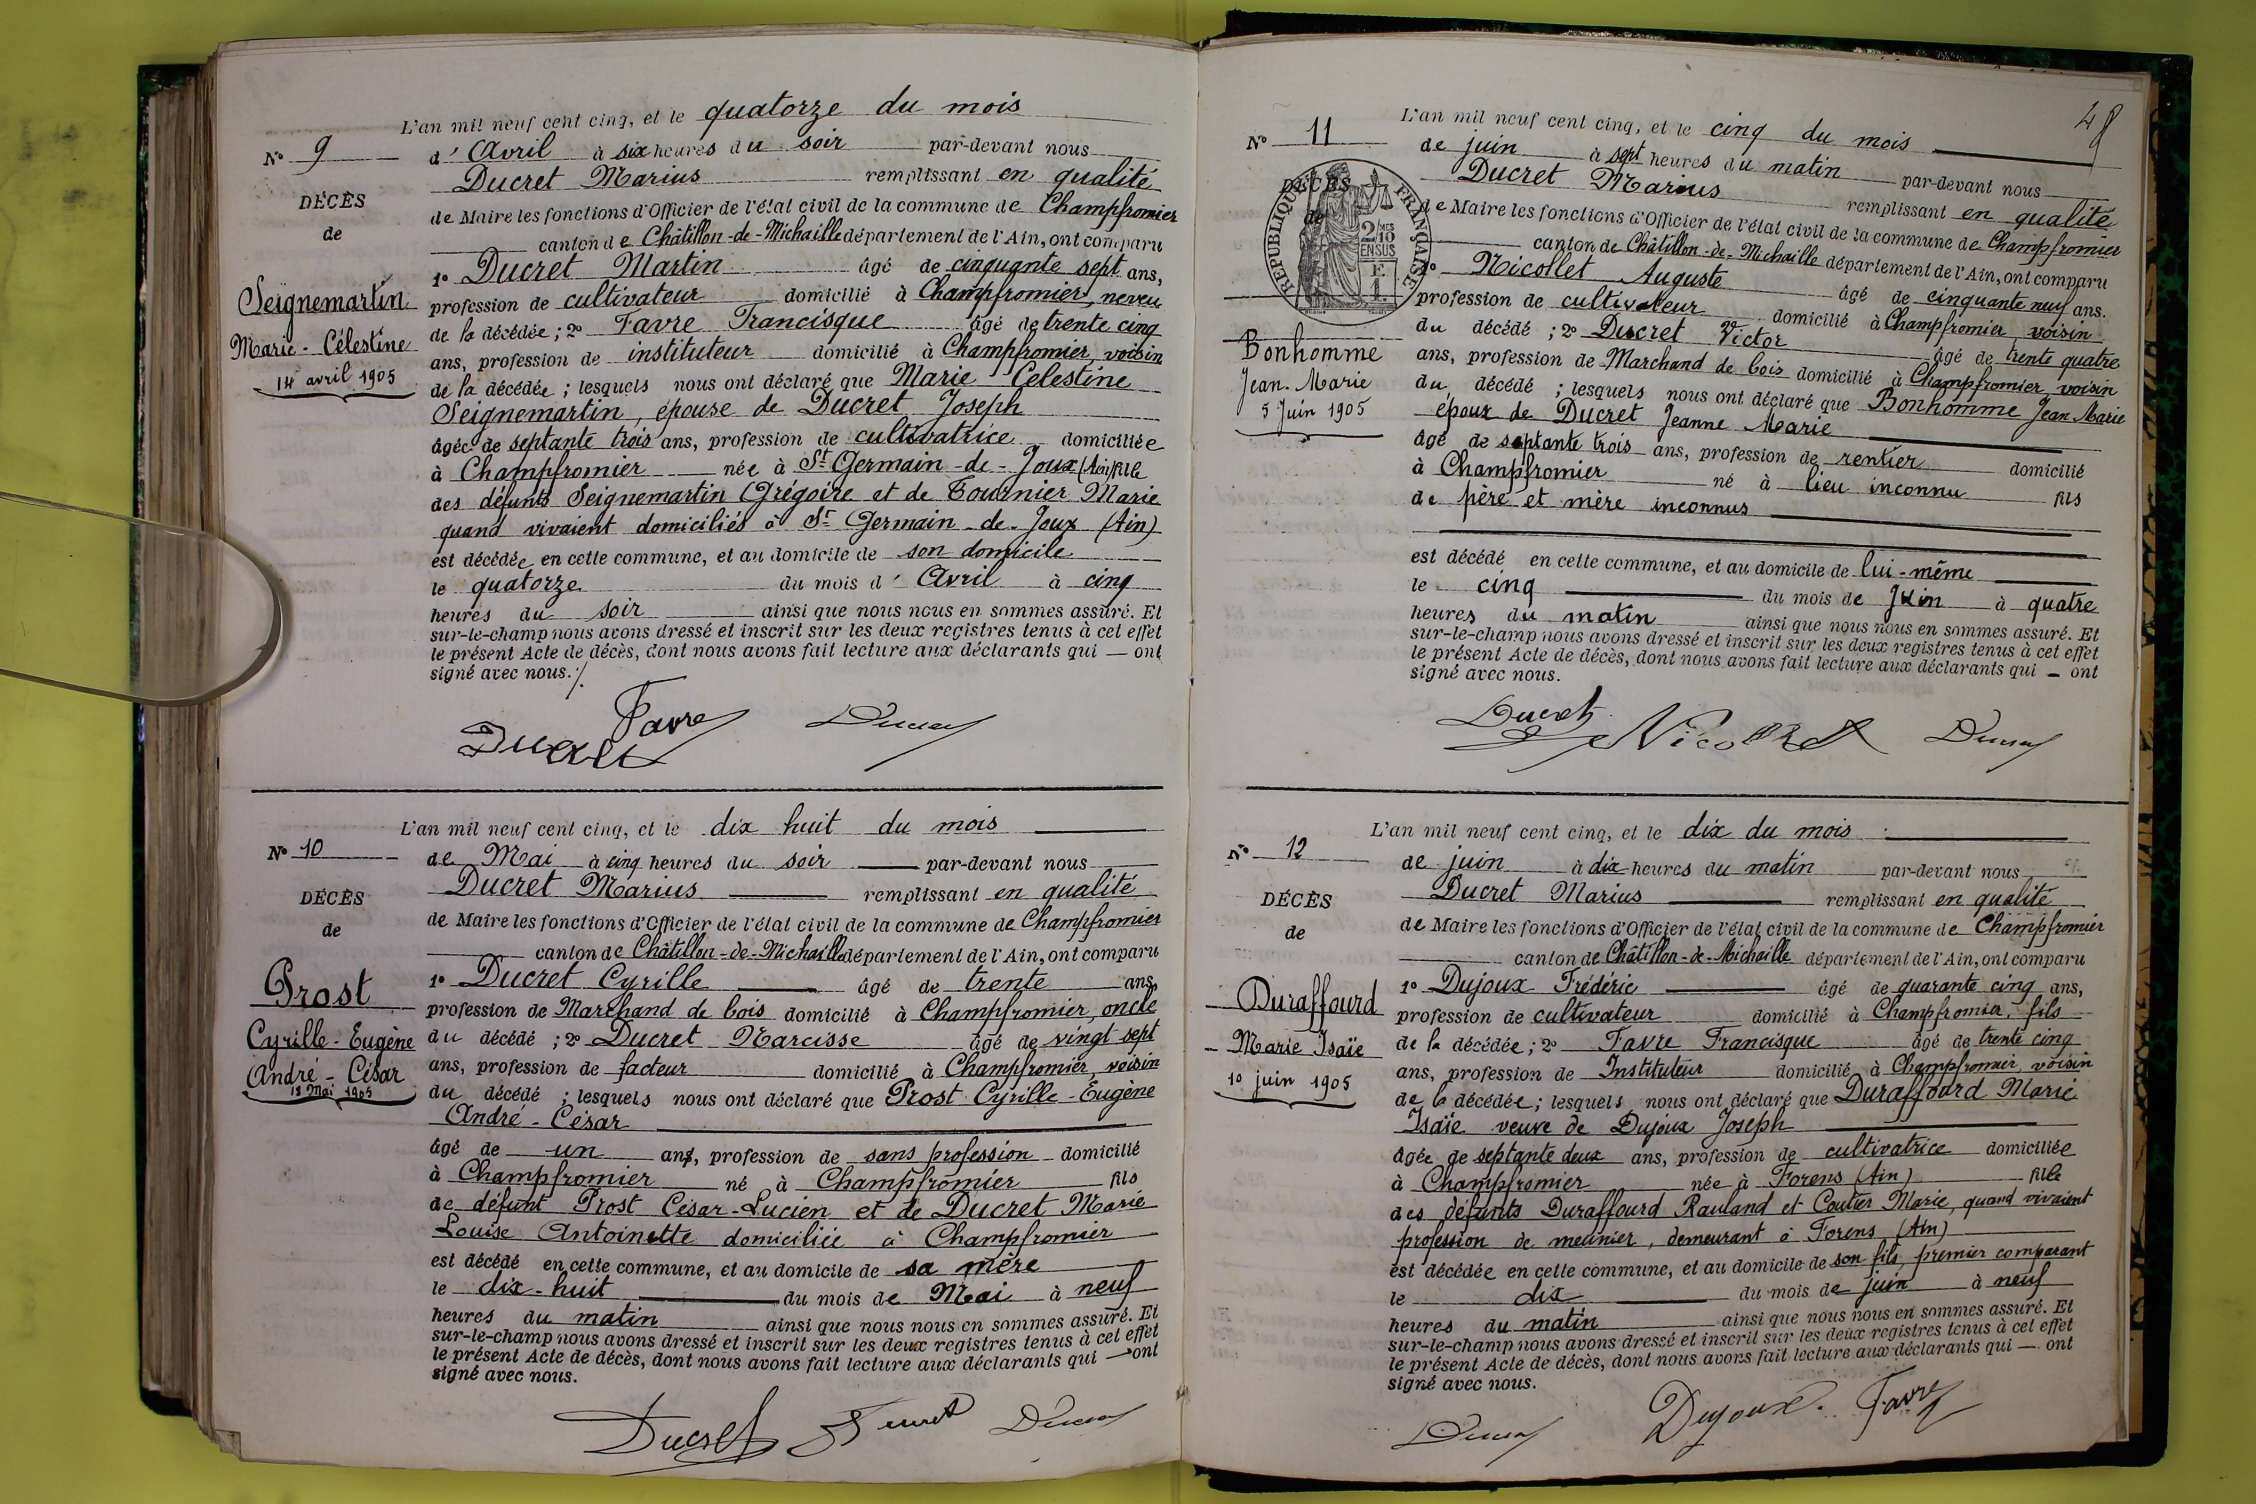 L'an mil neuf cent cinq, et le quatorze du mois
N° 9
d' Avril à six heures du soir par-devant nous
Ducret Marius remplissant en qualité
DÉCÈS
de Maire les fonctions d'Officier de l'état civil de la commune de Champfromier
de
canton de Châtillon-de-Michaille département de l'Ain, ont comparu
1° Ducret Martin âgé de cinquante sept ans,
Seignemartin
profession de cultivateur domicilié à Champfromier, neveu
de la décédée ; 2° Favre Francisque âgé de trente cinq
Marie - Célestine
ans, profession de instituteur domicilié à Champfromier, voisin
14 avril 1905
de la décédée ; lesquels nous ont déclaré que Marie Célestine
Seignemartin, épouse de Ducret Joseph
âgée de septante trois ans, profession de cultivatrice domiciliée
à Champfromier née à St Germain-de-Joux (Ain) fille
des défunts Seignemartin Grégoire et de Tournier Marie
quand vivaient domiciliés à St Germain-de-Joux (Ain)
est décédée en cette commune, et au domicile de son domicile
le quatorze du mois d' Avril à cinq
heures du soir ainsi que nous nous en sommes assuré. Et
sur-le-champ nous avons dressé et inscrit sur les deux registres tenus à cet effet
le présent Acte de décès, dont nous avons fait lecture aux déclarants qui — ont
signé avec nous./.
Favre
L'an mil neuf cent cinq, et le dix huit du mois
N° 10
de Mai à cinq heures du soir par-devant nous
Ducret Marius remplissant en qualité
DÉCÈS
de Maire les fonctions d'Officier de l'état civil de la commune de Champfromier
de
canton de Châtillon-de-Michaille département de l'Ain, ont comparu
1° Ducret Cyrille âgé de trente ans,
Prost
profession de Marchand de bois domicilié à Champfromier, oncle
Cyrille - Eugène
du décédé ; 2° Ducret Narcisse âgé de vingt sept
André - César
ans, profession de facteur domicilié à Champfromier, voisin
18 Mai 1905
du décédé ; lesquels nous ont déclaré que Prost Cyrille - Eugène
André - César
âgé de un ans, profession de sans profession domicilié
à Champfromier né à Champfromier fils
de défunt Prost César-Lucien et de Ducret Marie
Louise Antoinette domiciliée à Champfromier
est décédé en cette commune, et au domicile de sa mère
le dix-huit du mois de Mai à neuf
heures du matin ainsi que nous nous en sommes assuré. Et
sur-le-champ nous avons dressé et inscrit sur les deux registres tenus à cet effet
le présent Acte de décès, dont nous avons fait lecture aux déclarants qui — ont
signé avec nous.
Ducret
48
L'an mil neuf cent cinq, et le cinq du mois
N° 11
de juin à sept heures du matin par-devant nous
Ducret Marius remplissant en qualité
DÉCÈS
de
RÉPUBLIQUE FRANÇAISE
2/10 MES
EN SUS
E. 1.
de Maire les fonctions d'Officier de l'état civil de la commune de Champfromier
canton de Châtillon-de-Michaille département de l'Ain, ont comparu
1° Nicollet Auguste âgé de cinquante neuf ans.
profession de cultivateur domicilié à Champfromier, voisin
Bonhomme
du décédé ; 2° Ducret Victor âgé de trente quatre
Jean-Marie
ans, profession de Marchand de bois domicilié à Champfromier, voisin
5 Juin 1905
du décédé ; lesquels nous ont déclaré que Bonhomme Jean Marie
époux de Ducret Jeanne Marie
âgé de septante trois ans, profession de rentier domicilié
à Champfromier né à lieu inconnu fils
de père et mère inconnus
est décédé en cette commune, et au domicile de lui-même
le cinq du mois de Juin à quatre
heures du matin ainsi que nous nous en sommes assuré. Et
sur-le-champ nous avons dressé et inscrit sur les deux registres tenus à cet effet
le présent Acte de décès, dont nous avons fait lecture aux déclarants qui — ont
signé avec nous.
Ducret
L'an mil neuf cent cinq, et le dix du mois
N° 12
de juin à dix heures du matin par-devant nous
Ducret Marius remplissant en qualité
DÉCÈS
de Maire les fonctions d'Officier de l'état civil de la commune de Champfromier
de
canton de Châtillon-de-Michaille département de l'Ain, ont comparu
1° Dujoux Frédéric âgé de quarante cinq ans,
Duraffourd
profession de cultivateur domicilié à Champfromier, fils
Marie Isaïe
de la décédée ; 2° Favre Francisque âgé de trente cinq
10 juin 1905
ans, profession de Instituteur domicilié à Champfromier, voisin
de la décédée ; lesquels nous ont déclaré que Duraffourd Marie
Isaïe veuve de Dujoux Joseph
âgée de septante deux ans, profession de cultivatrice domiciliée
à Champfromier née à Forens (Ain) fille
des défunts Duraffourd Rauland et Coutier Marie, quand vivaient
profession de meunier, demeurant à Forens (Ain)
est décédée en cette commune, et au domicile de son fils, premier comparant
le dix du mois de juin à neuf
heures du matin ainsi que nous nous en sommes assuré. Et
sur-le-champ nous avons dressé et inscrit sur les deux registres tenus à cet effet
le présent Acte de décès, dont nous avons fait lecture aux déclarants qui — ont
signé avec nous.
Dujoux. Favre